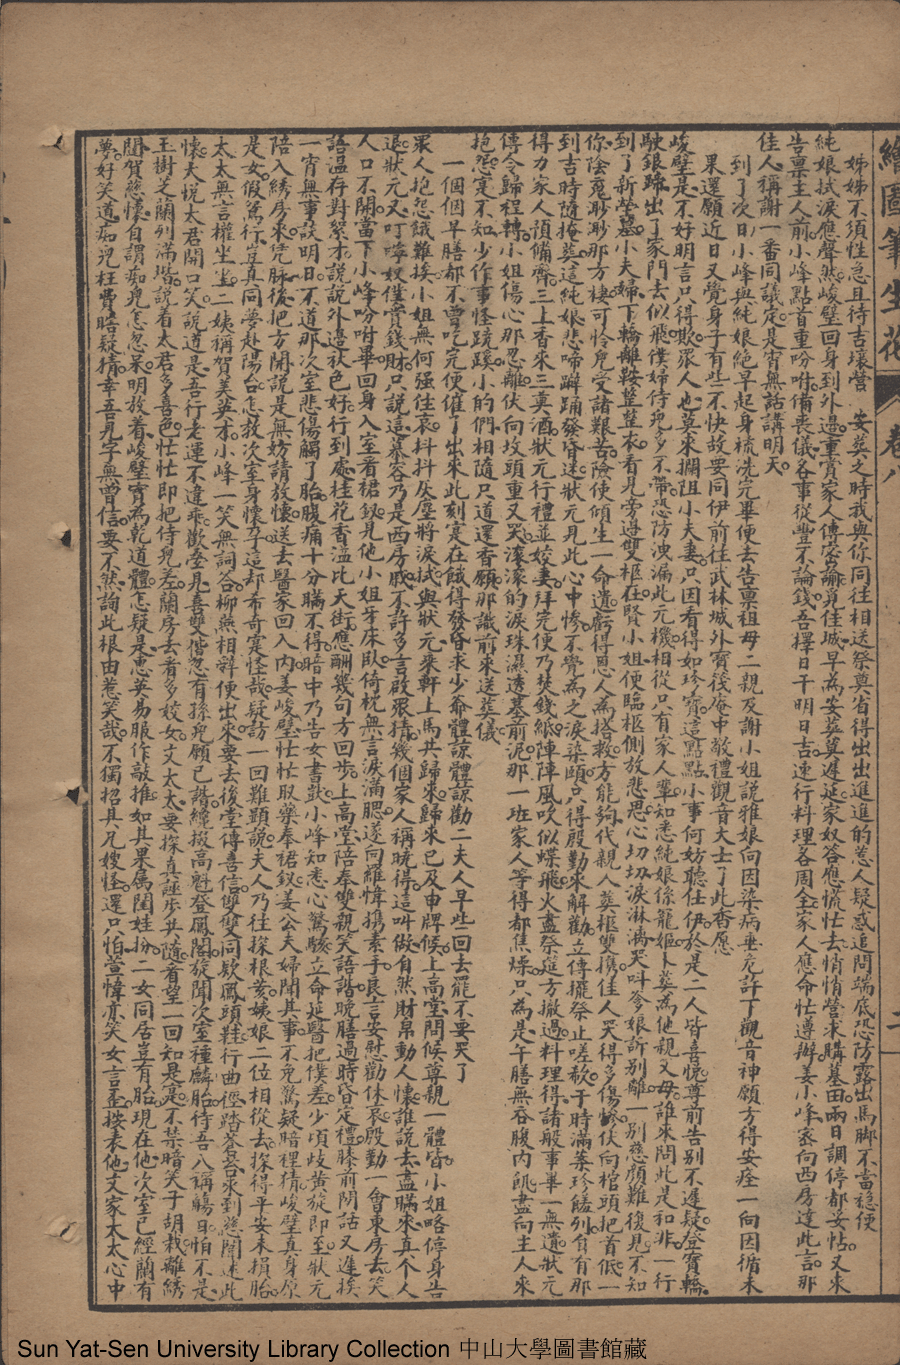 繪圖筆生花 卷八 二
姊姊不須性急且待吉壤營 安葬之時我與你同往相送祭奠省得出出進進的惹人疑惑追問端底恐防露出馬脚不當穩使
純娘拭淚應聲然峻壁回身到外邊重賞家人傳密諭覓佳城早為安葬莫遲延家奴答應慌忙去悄悄營求購墓田兩日調停都妥帖又來
告稟主人前小峰點首重吩咐備喪儀各事從豐不論錢吾擇日干明日吉速行料理各周全家人應命忙遵辦姜小峰密向西房達此言那
佳人稱謝一番同議定是宵無話講明天
到了次日小峰與純娘絕早起身梳洗完畢便去告稟祖母二親及謝小姐說雅娘向因染病垂危許了觀音神願方得安痊一向因循未
果還願近日又覺身子有些不快故要同伊前往武林城外寶筏庵中敬禮觀音大士了此香愿
峻壁是不好明言只得欺眾人也莫來攔阻小夫妻只因看得如珍寶這點點小事何妨聽任伊於是二人皆喜悅尊前告別不遲疑登寶轎
駛銀蹄出了家門去似飛僕婦侍兒多不帶恐防洩漏此元機相從只有家人輩知悉純娘係寵姬卜葬為他親父母誰來問此是和非一行
到了新塋墓小夫婦下轎離鞍整整衣看見旁邊雙柩在賢小姐便臨柩側放悲思心切切淚淋漓哭叫爹娘訴別離一別慈顏難復見不知
你陰靈眇眇那方棲可怜兒受諸艱苦險使傾生一命遺虧得恩人為搭救方能夠代親人葬柩雙攜佳人哭得多傷慘伏向棺頭把首低一
到吉時隨掩葬這純娘悲啼躃踊發昏迷狀元見此心中慘不覺為之淚染頤只得殷勤來解勸立傳擺祭止嗟欷于時滿案珍饈列自有那
得力家人預備齊三上香來三奠酒狀元行禮並姣妻拜完便乃焚錢紙陣陣風吹似蝶飛火盡祭筵方撤過料理得諸般事畢一無遺狀元
傳令歸程轉小姐傷心那忍離伏向坟頭重又哭滾滾的淚珠濕透墓前泥那一班家人等得都焦燥只為是午膳無吞腹內飢盡向主人來
抱怨寔不知少作事怪蹺蹊小的們相隨只道還香願那識前來送葬儀
一個個早膳都不曾吃完便催了出來此刻寔在餓得發昏求少爺體諒體諒勸二夫人早些回去罷不要哭了
眾人抱怨餓難挨小姐無何強住哀抖抖灰塵將淚拭與狀元乘軒上馬共歸來歸來已及申牌候上高堂問候尊親一體皆小姐略停身告
退狀元又叮嚀奴僕賞錢財只說這慕容乃是西房戚不許多言啟眾猜幾個家人稱曉得這叫做自然財帛動人懷誰說去盡瞞來真个人
人口不開當下小峰吩咐畢回身入室看裙釵見他小姐牙床臥倚枕無言淚滿腮遂向羅幃携素手良言安慰勸休哀殷勤一會東房去笑
語溫存對繁才說說外邊秋色好行到處桂花香溢比天街應酬幾句方回步上高堂陪奉雙親笑語諧晚膳過時昏定禮膝前問話又遲挨
一宵無事談明日不道那次室悲傷觸了胎腹痛十分瞞不得暗中乃告女書獃小峰知悉心驚駭立命延醫把僕差少頃歧黃旋即至狀元
陪入綉房來凭脉後把方開說是無妨請放懷送去醫家回入內姜峻壁忙忙取藥奉裙釵姜公夫婦聞其事不免驚疑暗裡猜峻壁真身原
是女假鴛行豈真同夢赴陽台怎教次室身懷孕這却希奇寔怪哉疑訪一回難顯說夫人乃往探根荄姨娘二位相從去探得平安未損胎
太太無言權坐坐二姨稱賀美英才小峰一笑無詞答柳燕相辞便出來要去後堂傳喜信雙雙同欵鳳頭鞋行曲徑踏蒼苔來到慈闈述此
懷夫悅太君開口笑說道是吾行老運不違乖歡登見喜雙偕忽有孫兒願已諧纔掇高魁登鳳閣旋聞次室種麟胎待吾八稱觴日怕不是
玉樹芝蘭列滿堦說着太君多喜色忙忙即把侍兒差蘭房去看多姣女丈太太要探真誣步共隨看望一回知是寔不禁暗笑子胡栽離綉
閣賀慈懷自謂痴兒怎忽呆明放着峻壁實為乾道體怎疑是惠英易服作敲推如其果屬閨娃扮二女同居豈有胎現在他次室已經蘭有
夢好笑道痴兒枉費暗疑猜幸吾見字無曾信要不然詢此根由惹笑哉不獨招其兄嫂怪還只怕萱幃亦笑女言歪按表他文家太太心中
Sun Yat-Sen University Library Collection 中山大學圖書館藏